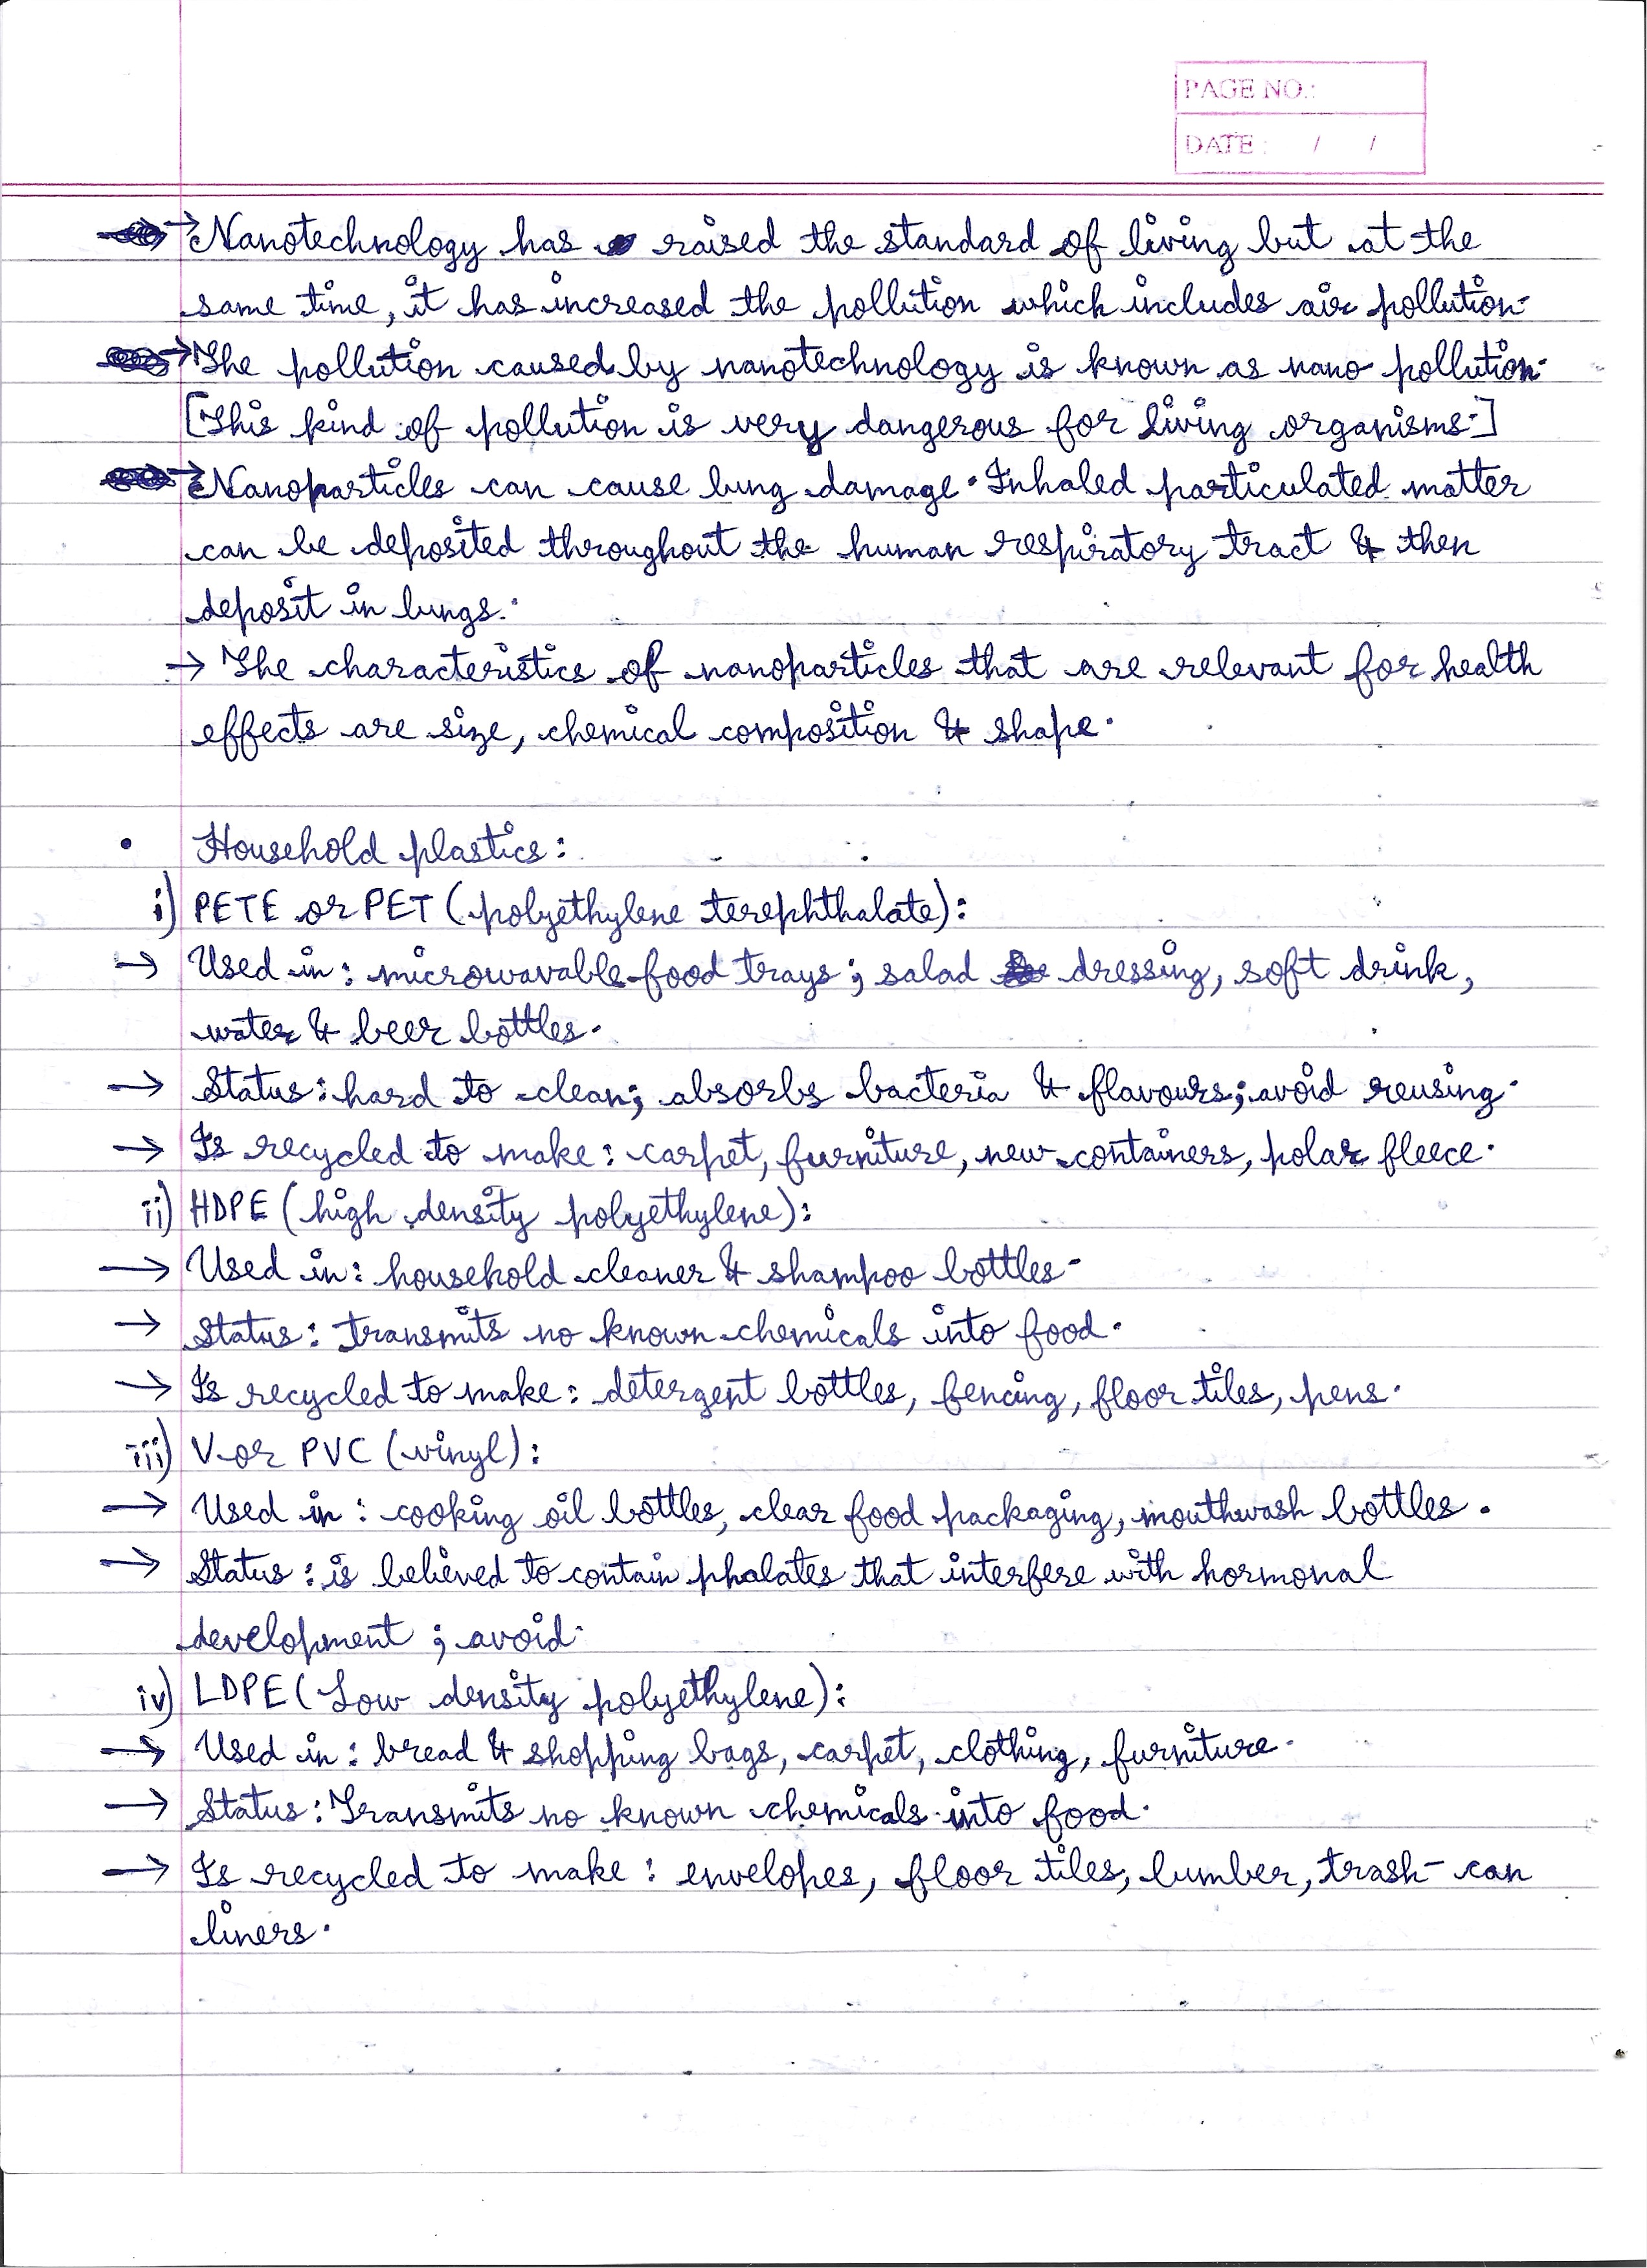 PAGE NO.:
DATE : / /
→ Nanotechnology has raised the standard of living but at the
same time, it has increased the pollution which includes air pollution.
→ The pollution caused by nanotechnology is known as nano pollution.
[This kind of pollution is very dangerous for living organisms.]
→ Nanoparticles can cause lung damage. Inhaled particulated matter
can be deposited throughout the human respiratory tract & then
deposit in lungs.
→ The characteristics of nanoparticles that are relevant for health
effects are size, chemical composition & shape.
• Household plastics:
i) PETE or PET (polyethylene terephthalate):
→ Used in: microwavable food trays; salad dressing, soft drink,
water & beer bottles.
→ Status: hard to clean; absorbs bacteria & flavours; avoid reusing.
→ Is recycled to make: carpet, furniture, new containers, polar fleece.
ii) HDPE (high density polyethylene):
→ Used in: household cleaner & shampoo bottles.
→ Status: transmits no known chemicals into food.
→ Is recycled to make: detergent bottles, fencing, floor tiles, pens.
iii) V or PVC (vinyl):
→ Used in: cooking oil bottles, clear food packaging, mouthwash bottles.
→ Status: is believed to contain phalates that interfere with hormonal
development; avoid.
iv) LDPE (Low density polyethylene):
→ Used in: bread & shopping bags, carpet, clothing, furniture.
→ Status: Transmits no known chemicals into food.
→ Is recycled to make: envelopes, floor tiles, lumber, trash-can
liners.